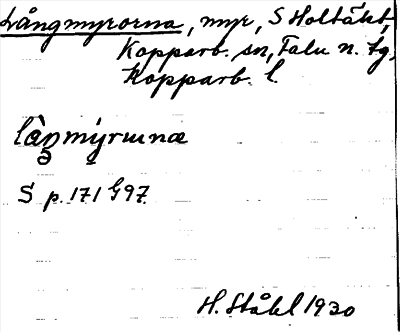 Långmyrorna, myr, S Holtäkt,
Kopparb. sn, Falu n. tg,
Kopparb. l.
S p. 171 G97
H. Ståhl 1930